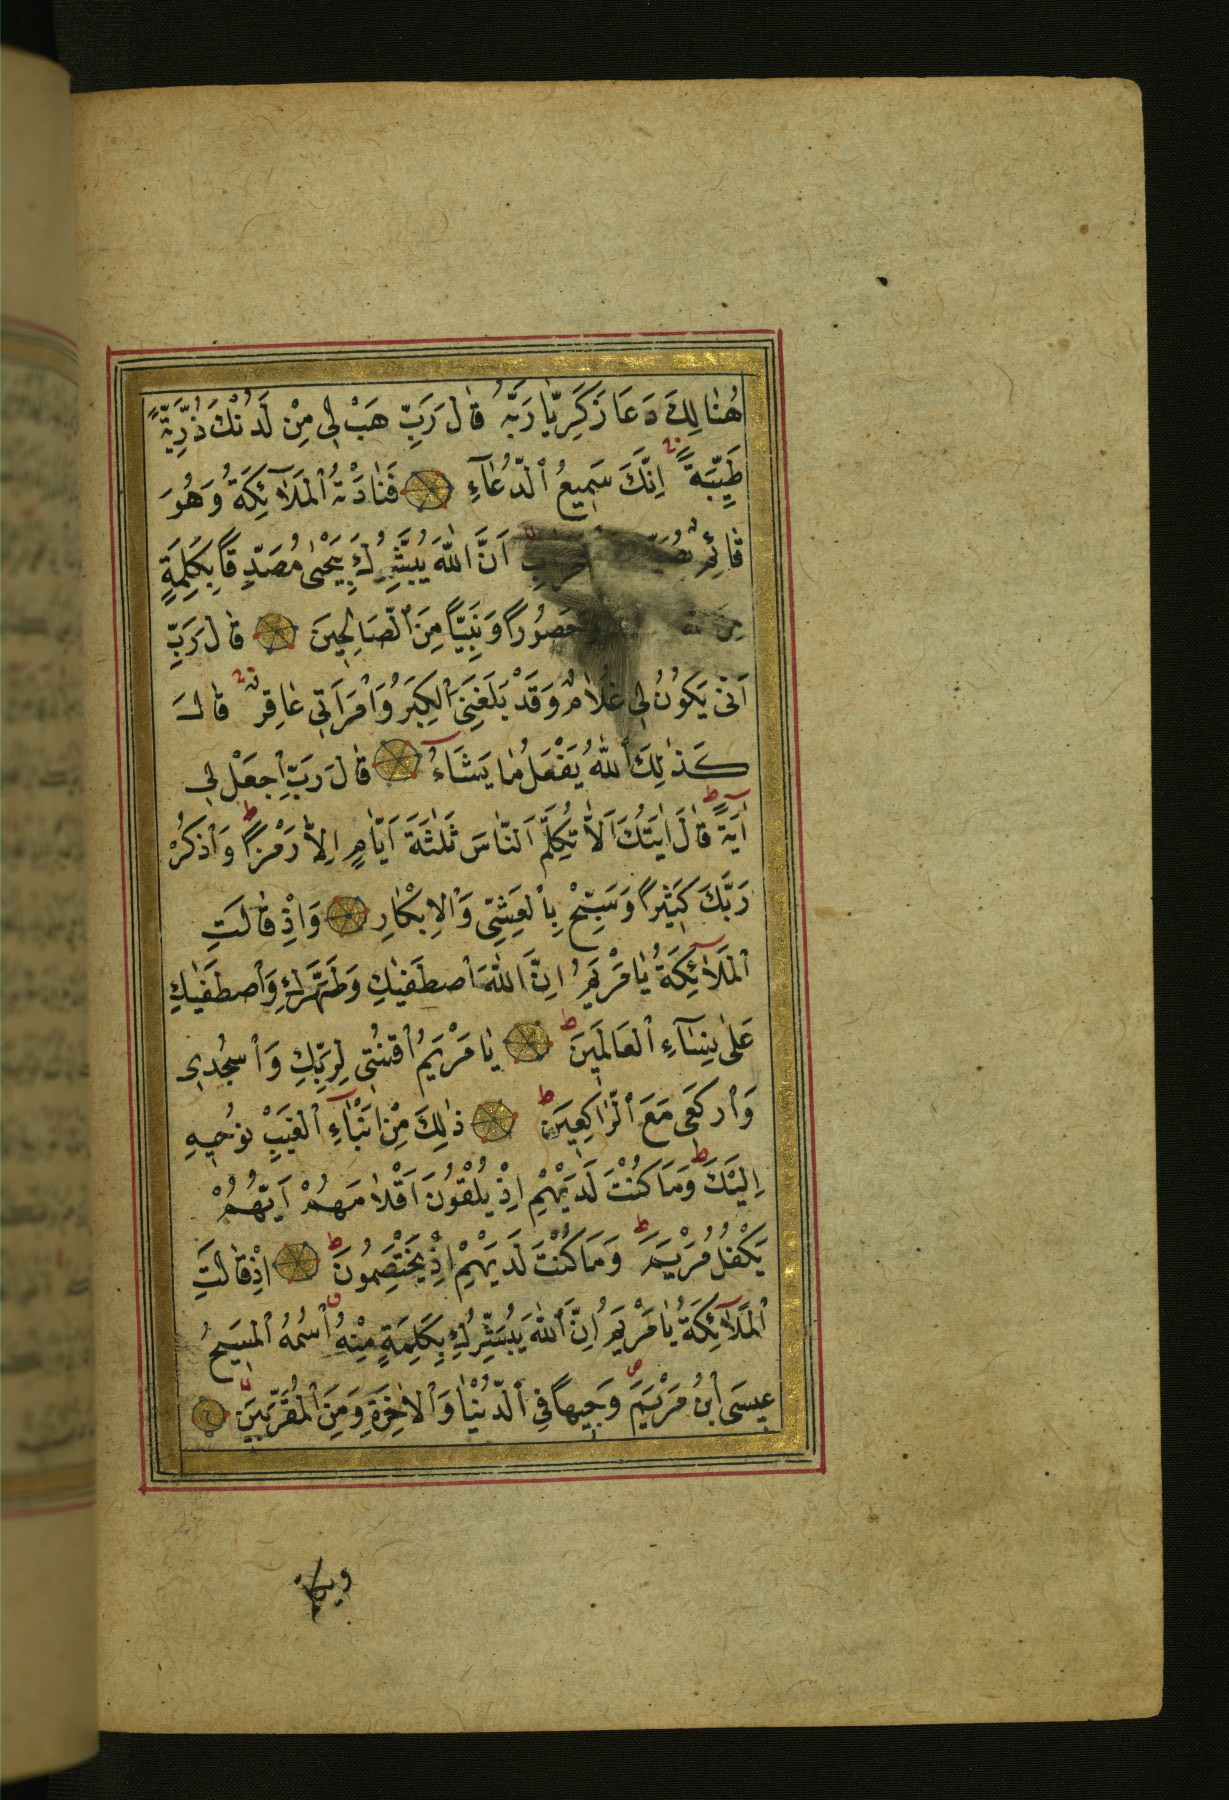 هُنٰالِكَ دَعَا زَكَرِيّٰا رَبَّهُ قٰالَ رَبِّ هَبْ لِى مِنْ لَدُنْكَ ذُرِّيَّةً
طَيِّبَةً اِنَّكَ سَمِيعُ ٱلدُّعٰآءِ فَنٰادَتْهُ ٱلْمَلٰآئِكَةُ وَهُوَ
قٰائِمٌ اَنَّ ٱللّٰهَ يُبَشِّرُكَ بِيَحْيٰى مُصَدِّقًا بِكَلِمَةٍ
مِنَ وَحَصُورًا وَنَبِيًّا مِنَ ٱلصّٰالِحِينَ قٰالَ رَبِّ
اَنّٰى يَكُونُ لِى غُلٰامٌ وَقَدْ بَلَغَنِىَ ٱلْكِبَرُ وَٱمْرَاَتِى عٰاقِرٌ قٰالَ
كَذٰلِكَ ٱللّٰهُ يَفْعَلُ مٰا يَشَآءُ قٰالَ رَبِّ ٱجْعَلْ لِى
اٰيَةً قٰالَ اٰيَتُكَ اَلّٰا تُكَلِّمَ ٱلنّٰاسَ ثَلٰثَةَ اَيّٰامٍ اِلّٰا رَمْزًا وَٱذْكُرْ
رَبَّكَ كَثِيرًا وَسَبِّحْ بِٱلْعَشِىِّ وَٱلْاِبْكٰارِ وَاِذْ قٰالَتِ
ٱلْمَلٰآئِكَةُ يٰامَرْيَمُ اِنَّ ٱللّٰهَ ٱصْطَفٰيكِ وَطَهَّرَكِ وَٱصْطَفٰيكِ
عَلٰى نِسٰآءِ ٱلْعَالَمِينَ يٰامَرْيَمُ ٱقْنُتِى لِرَبِّكِ وَٱسْجُدِى
وَٱرْكَعِى مَعَ ٱلرّٰاكِعِينَ ذٰلِكَ مِنْ اَنْبٰآءِ ٱلْغَيْبِ نُوحِيهِ
اِلَيْكَ وَمَا كُنْتَ لَدَيْهِمْ اِذْ يُلْقُونَ اَقْلٰامَهُمْ اَيُّهُمْ
يَكْفُلُ مَرْيَمَ وَمَا كُنْتَ لَدَيْهِمْ اِذْ يَخْتَصِمُونَ اِذْ قٰالَتِ
ٱلْمَلٰآئِكَةُ يٰامَرْيَمُ اِنَّ ٱللّٰهَ يُبَشِّرُكِ بِكَلِمَةٍ مِنْهُ ٱسْمُهُ ٱلْمَسِيحُ
عِيسَى ٱبْنُ مَرْيَمَ وَجِيهًا فِى ٱلدُّنْيٰا وَٱلْاٰخِرَةِ وَمِنَ ٱلْمُقَرَّبِينَ
ويكلم